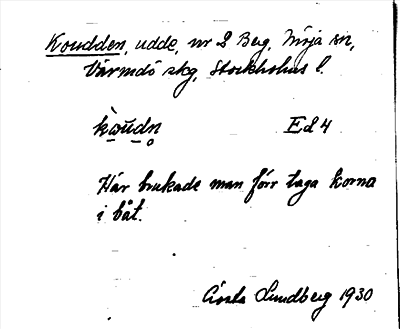 Koudden, udde, nr 2 Berg, Möja sn,
Värmdö skg, Stockholms l.
kòudn Ed 4
Här brukade man förr taga korna
i båt.
Gösta Lundberg 1930